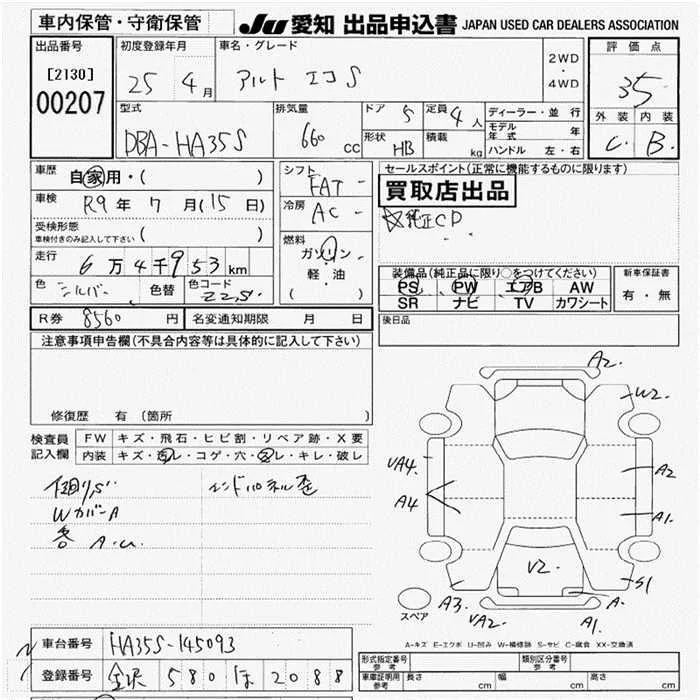 車内保管・守衛保管
JU 愛知 出品申込書 JAPAN USED CAR DEALERS ASSOCIATION
出品番号
[2130]
00207
初度登録年月
25 4月
車名・グレード
アルト エコS
2WD
・
4WD
評価点
3.5
外装 内装
C B
型式
DBA-HA35S
排気量
660 cc
ドア 5
形状 HB
定員 4人
積載 kg
ディーラー・並行
モデル年式 年
ハンドル 左・右
車歴 自家用・( )
車検 R9年 7月(15日)
受検形態
車検付きのみ記入して下さい ( )
走行 6万4千953km
色 シルバー 色替 色コード Z2S
シフト
FAT
冷房
AC
燃料
ガソリン
軽・油
( )
セールスポイント(正常に機能するものに限ります)
買取店出品
☆純正CD
装備品(純正品に限り○をつけてください)
PS PW エアB AW
SR ナビ TV カワシート
新車保証書
有・無
R券 8560円 名変通知期限 月 日
後日品
注意事項申告欄(不具合内容等は具体的に記入して下さい)
修復歴 有 (箇所 )
検査員
記入欄
FW キズ・飛石・ヒビ割・リペア跡・X要
内装 キズ・汚レ・コゲ・穴・スレ・キレ・破レ
WカバーA
各A.U.
エンドパネル歪
A2.
W2
UA4
A4
A2
A1.
V2
S1
A3.
UA2
A
A1.
スペア
A-キズ E-エクボ U-凹み W-補修跡 S-サビ C-腐食 XX-交換済
車台番号 HA35S-145093
登録番号 580 ほ 2088
形式指定番号
参考
類別区分番号
参考
車庫証明用
参考
長さ cm 幅 cm 高さ cm